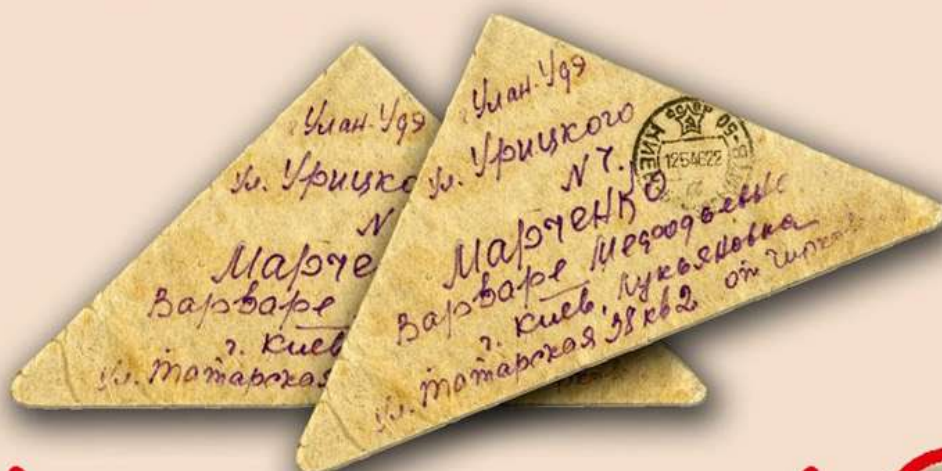 Улан-Удэ
ул. Урицко
N
Марче
Варваре
г. Киев
ул. Татарская
Улан-Удэ
ул. Урицкого
N 7.
Марченко
Варваре Мефодьевне
г. Киев, Лукьяновка
ул. Татарская 38 кв 2 от
КИЕВ
1254622